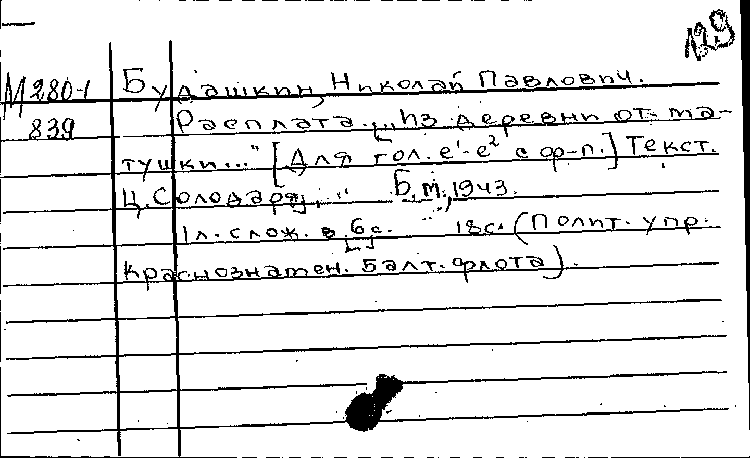 129
М 280-1 Будашкин, Николай Павлович.
839 Расплата. „Из деревни от ма-
тушки..." [Для гол. e¹-e² с ф-п.] Текст.
Ц. Солодаря, ... Б.м., 1943.
1л. слож. в [6с.] 18с. (Полит. упр.
краснознамен. Балт. флота).